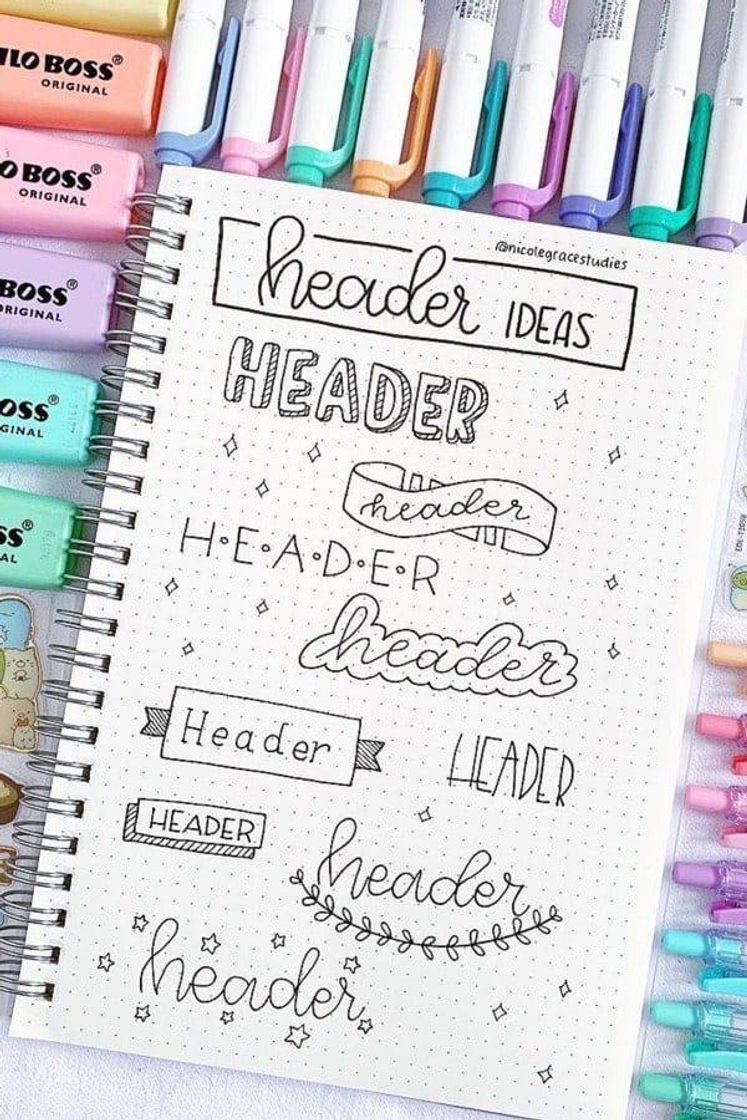 ILO BOSS®
ORIGINAL
O BOSS®
ORIGINAL
BOSS®
ORIGINAL
OSS®
GINAL
SS®
AL
@nicolegracestudies
header IDEAS
HEADER
header
H•E•A•D•E•R
header
Header
HEADER
HEADER
header
header